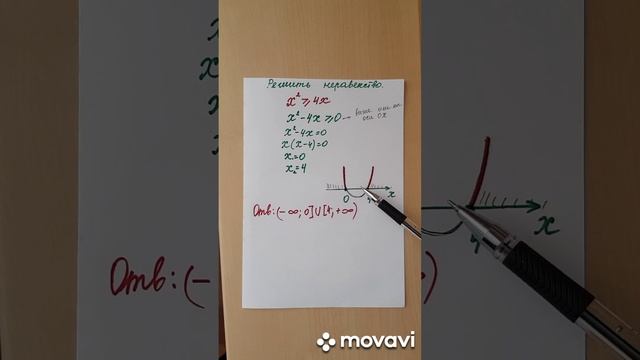 Решить неравенство.
x² ≥ 4x
x² - 4x ≥ 0
x² - 4x = 0
x(x-4) = 0
x₁ = 0
x₂ = 4
0 4 x
Отв: (-∞; 0] ∪ [4; +∞)
movavi